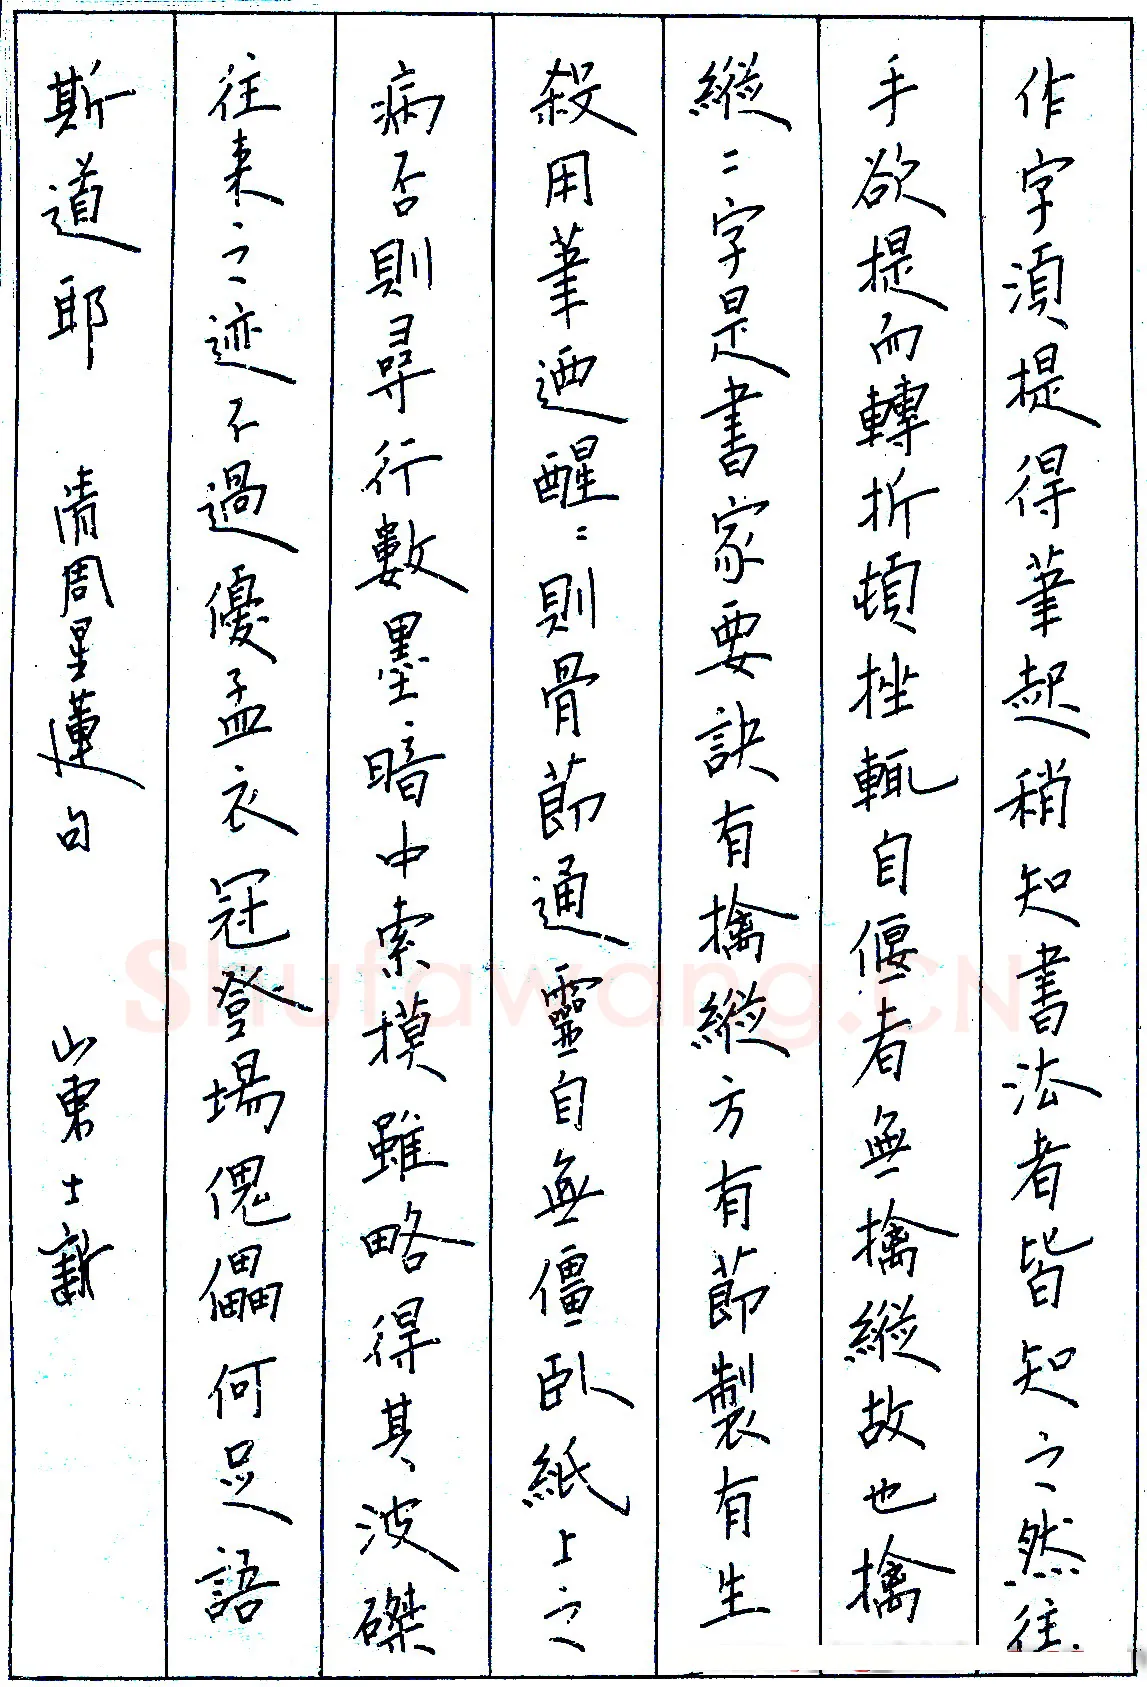 作字須提得筆起稍知書法者皆知之然往
手欲提而轉折頓挫輒自偃者無擒縱故也擒
縱二字是書家要訣有擒縱方有節製有生
殺用筆迺醒=則骨節通靈自無僵臥紙上之
病否則尋行數墨暗中索摸雖略得其波磔
往來之迹不過優孟衣冠登場傀儡何足語
斯道耶 清周星蓮句 山東士新
Shufawang.CN